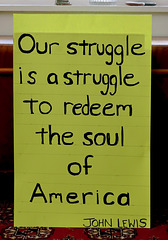 Our struggle
is a struggle
to redeem
the soul
of
America
JOHN LEWIS